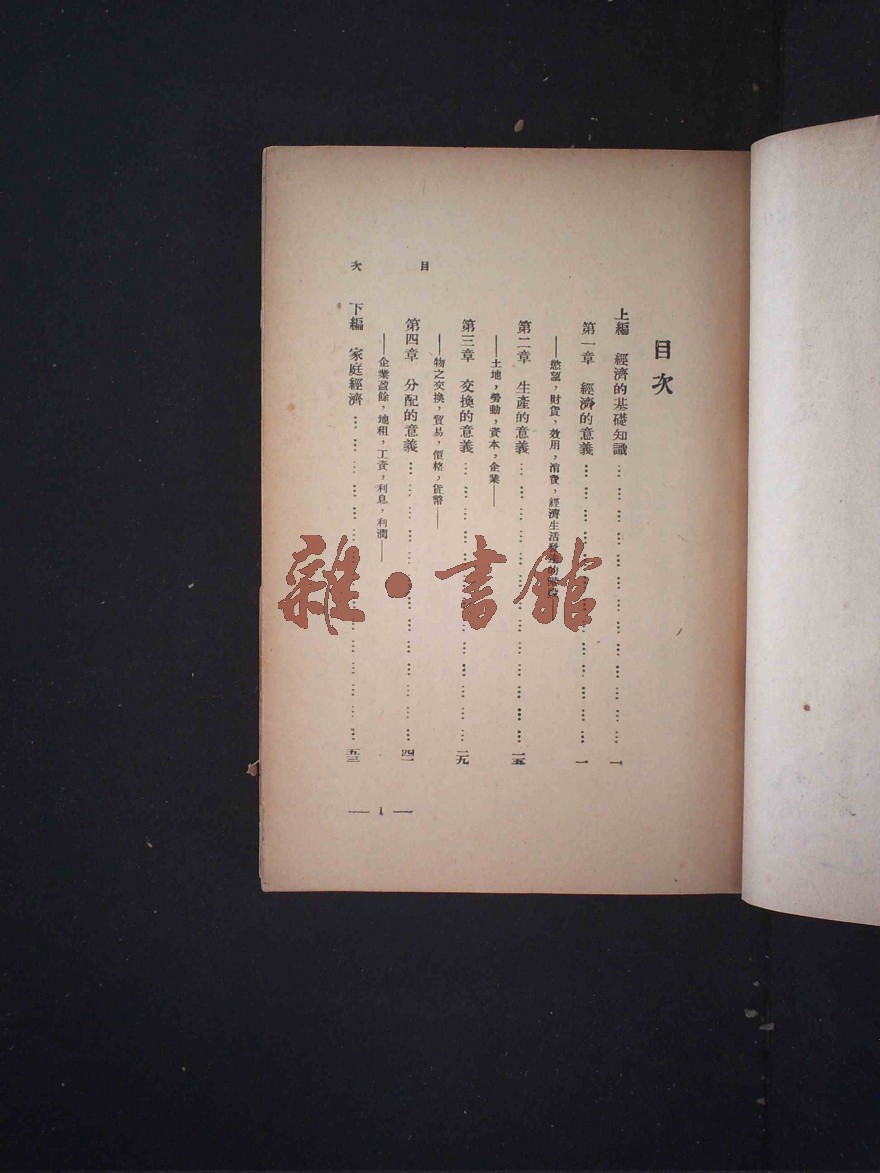 目次
上編 經濟的基礎知識………………………………一
第一章 經濟的意義………………………………一
——慾望，財貨，效用，消費，經濟生活
第二章 生產的意義………………………………一五
——土地，勞動，資本，企業——
第三章 交換的意義………………………………二九
——物之交換，貿易，價格，貨幣——
第四章 分配的意義………………………………四一
——企業盈餘，地租，工資，利息，利潤——
下編 家庭經濟………………………………五三
目次
— 1 —
雜·書館